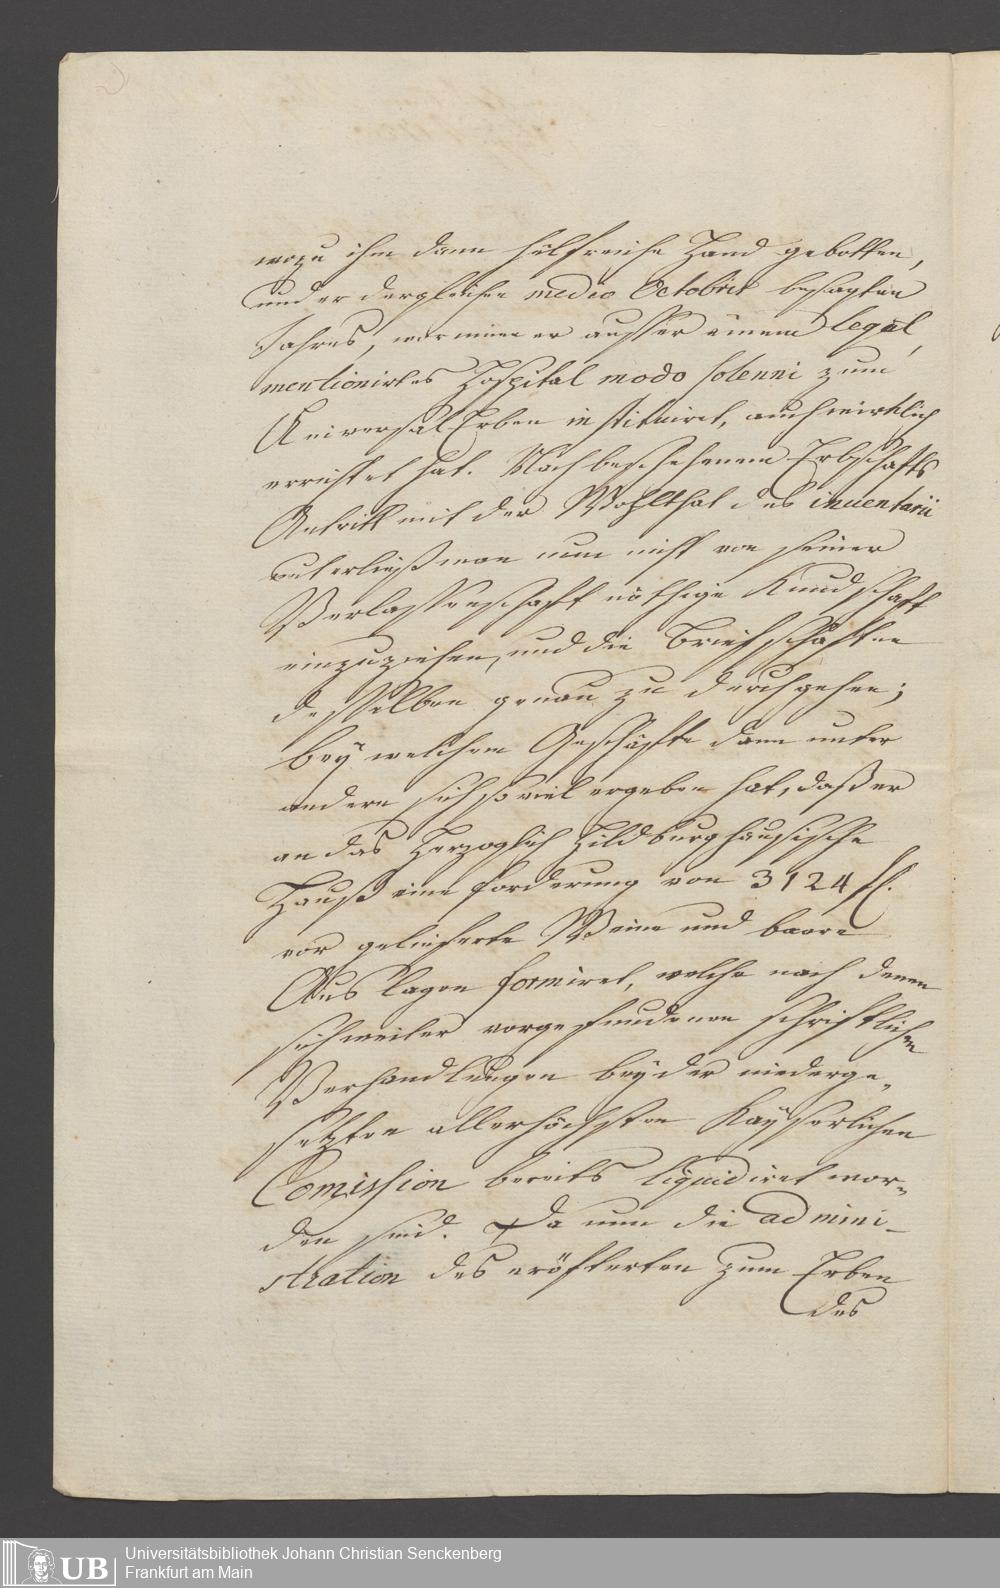 wozu ihm dann hülfreiche Hand gebotten,
und er dergleichen medio Octobris besagten
Jahres, worinnen er ausser einem legal,
mentionirtes Hospital modo solenni zum
Universal Erben instituiret, auch würklich
errichtet hat. Nach beschehenem Erbschafts
Antritt mit der Wohlthat des inventarii
unterließ man nun nicht von seiner
Verlassenschafft nöthige Kundschafft
einzuziehen, und die Briefschafften
desselben genau zu durchgehen;
bey welchem Geschäffte dann unter
andern sich so viel ergeben hat, daß er
an das Herzoglich Hildburghäusische
Hauß eine Forderung von 3124 fl.
vor gelieferte Weine und baare
Auslagen formiret, welche nach denen
sichweiler vorgefundenen schrifftlichen
Verhandlungen bey der niederge-
setzten allerhöchsten Kayserlichen
Comission bereits liquidiret wor-
den sind. Da nun die admini-
stration des eröfterten zum Erben
des
Universitätsbibliothek Johann Christian Senckenberg
Frankfurt am Main
UB